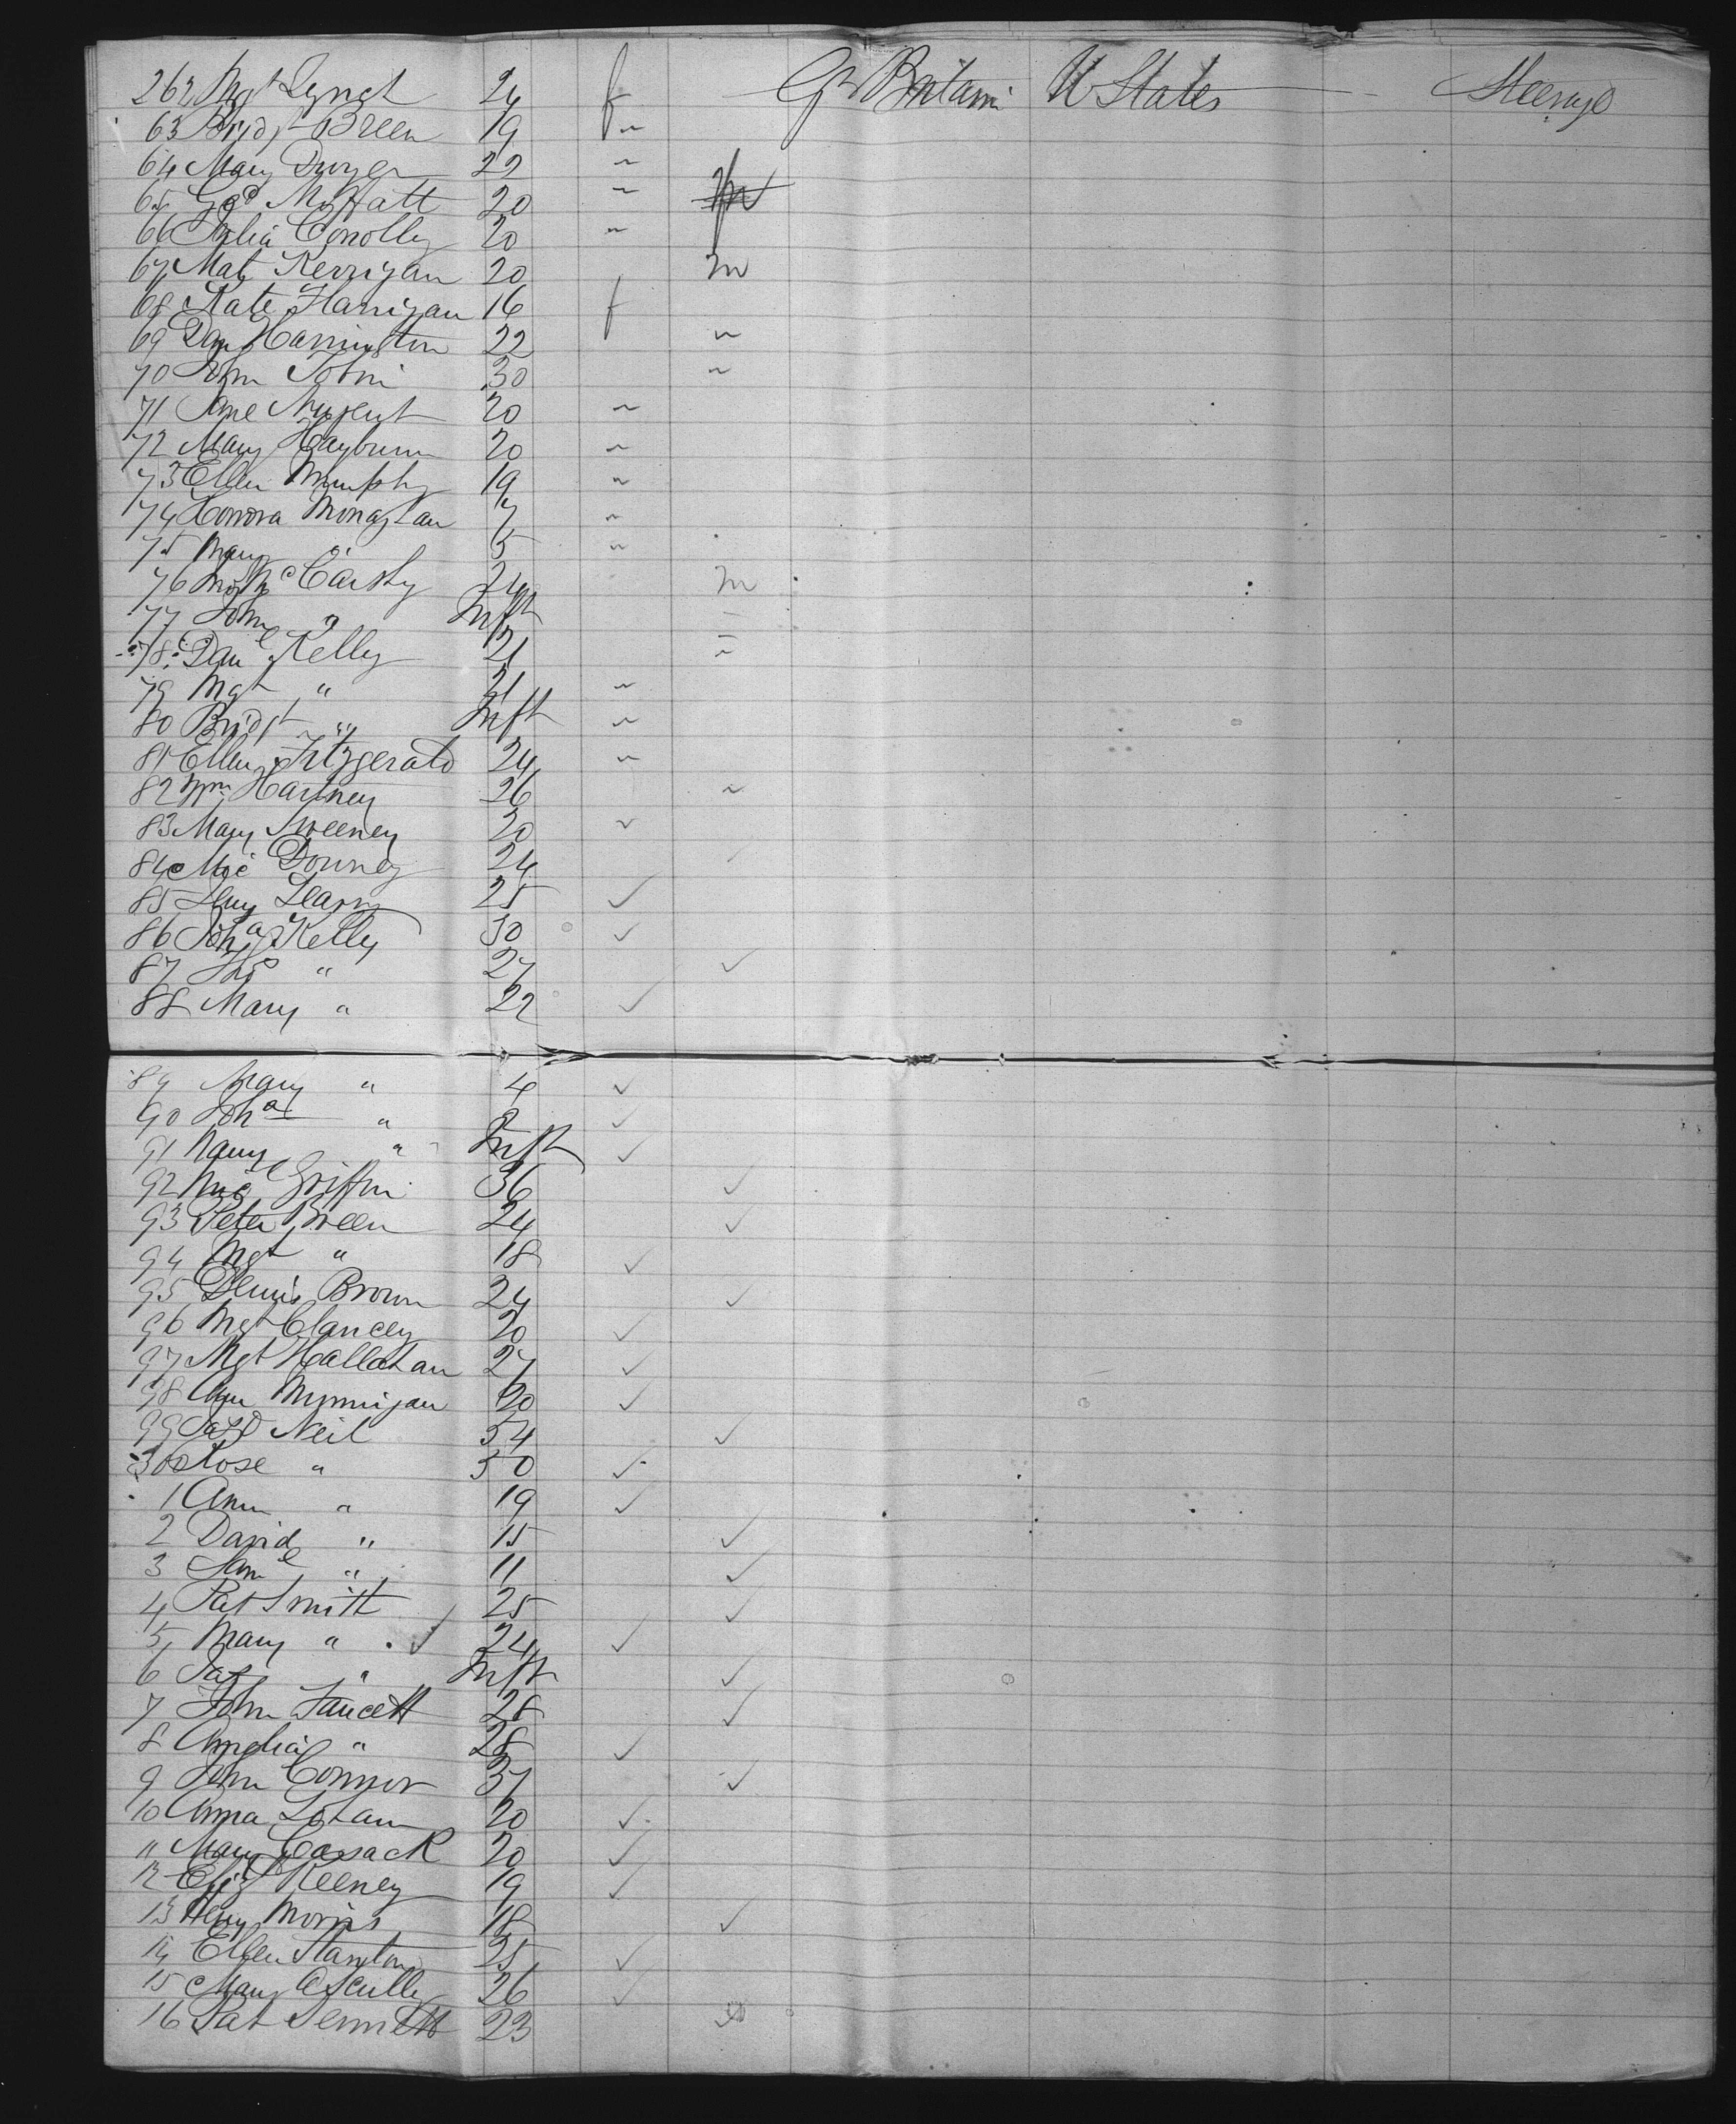 262 Mgt Lynch 24 f Gt Britain U States Steerage
63 Bridgt Breen 19 "
64 Mary Dwyer 22 "
65 Geo Moffatt 20 " m
66 Julia Conolly 20 "
67 Mat Kerrigan 20 m
68 Kate Hanigan 16 f
69 Dan Harrington 22 "
70 John Tobin 30 "
71 Jane Nugent 20 "
72 Mary Hayburn 20 "
73 Ellen Murphy 19 "
74 Honora Monaghan 7 "
75 Mary " 5 "
76 McCarthy 24 m
77 John " Inft "
78 Danl Kelly 21 "
79 Mgt " 21 "
80 Bridgt " Inft "
81 Ellen Fitzgerald 24 "
82 Wm Hartney 26 "
83 Mary Sweeney 20 "
84 Mic Downey 24 ✓
85 Leary 25 ✓
86 Joha Kelly 30 ✓
87 Tho " 27 ✓
88 Mary " 22 ✓
89 Mary " 4 ✓
90 Joha " 2 ✓
91 Nancy " Inft ✓
92 Mic Griffin 36 ✓
93 Peter Breen 24 ✓
94 Mgt " 18 ✓
95 Dennis Brown 24 ✓
96 Mgt Clancey 20 ✓
97 Mgt Hallahan 27 ✓
98 Ann 20 ✓
99 Neil 54 ✓
300 Rose " 50 ✓
1 Ann " 19 ✓
2 David " 15 ✓
3 Saml " 11 ✓
4 Pat Smith 25 ✓
5 Mary " ✓ 24 ✓
6 Jas " Inft ✓
7 John Faucett 28 ✓
8 Amelia " 28 ✓
9 John Connor 37 ✓
10 Anna 20 ✓
11 Mary Casack 20 ✓
12 Elizth Keeney 19 ✓
13 Heny Morris 18 ✓
14 Ellen Stanton 25 ✓
15 Mary A Scully 26 ✓
16 Pat Sennett 23 ✓